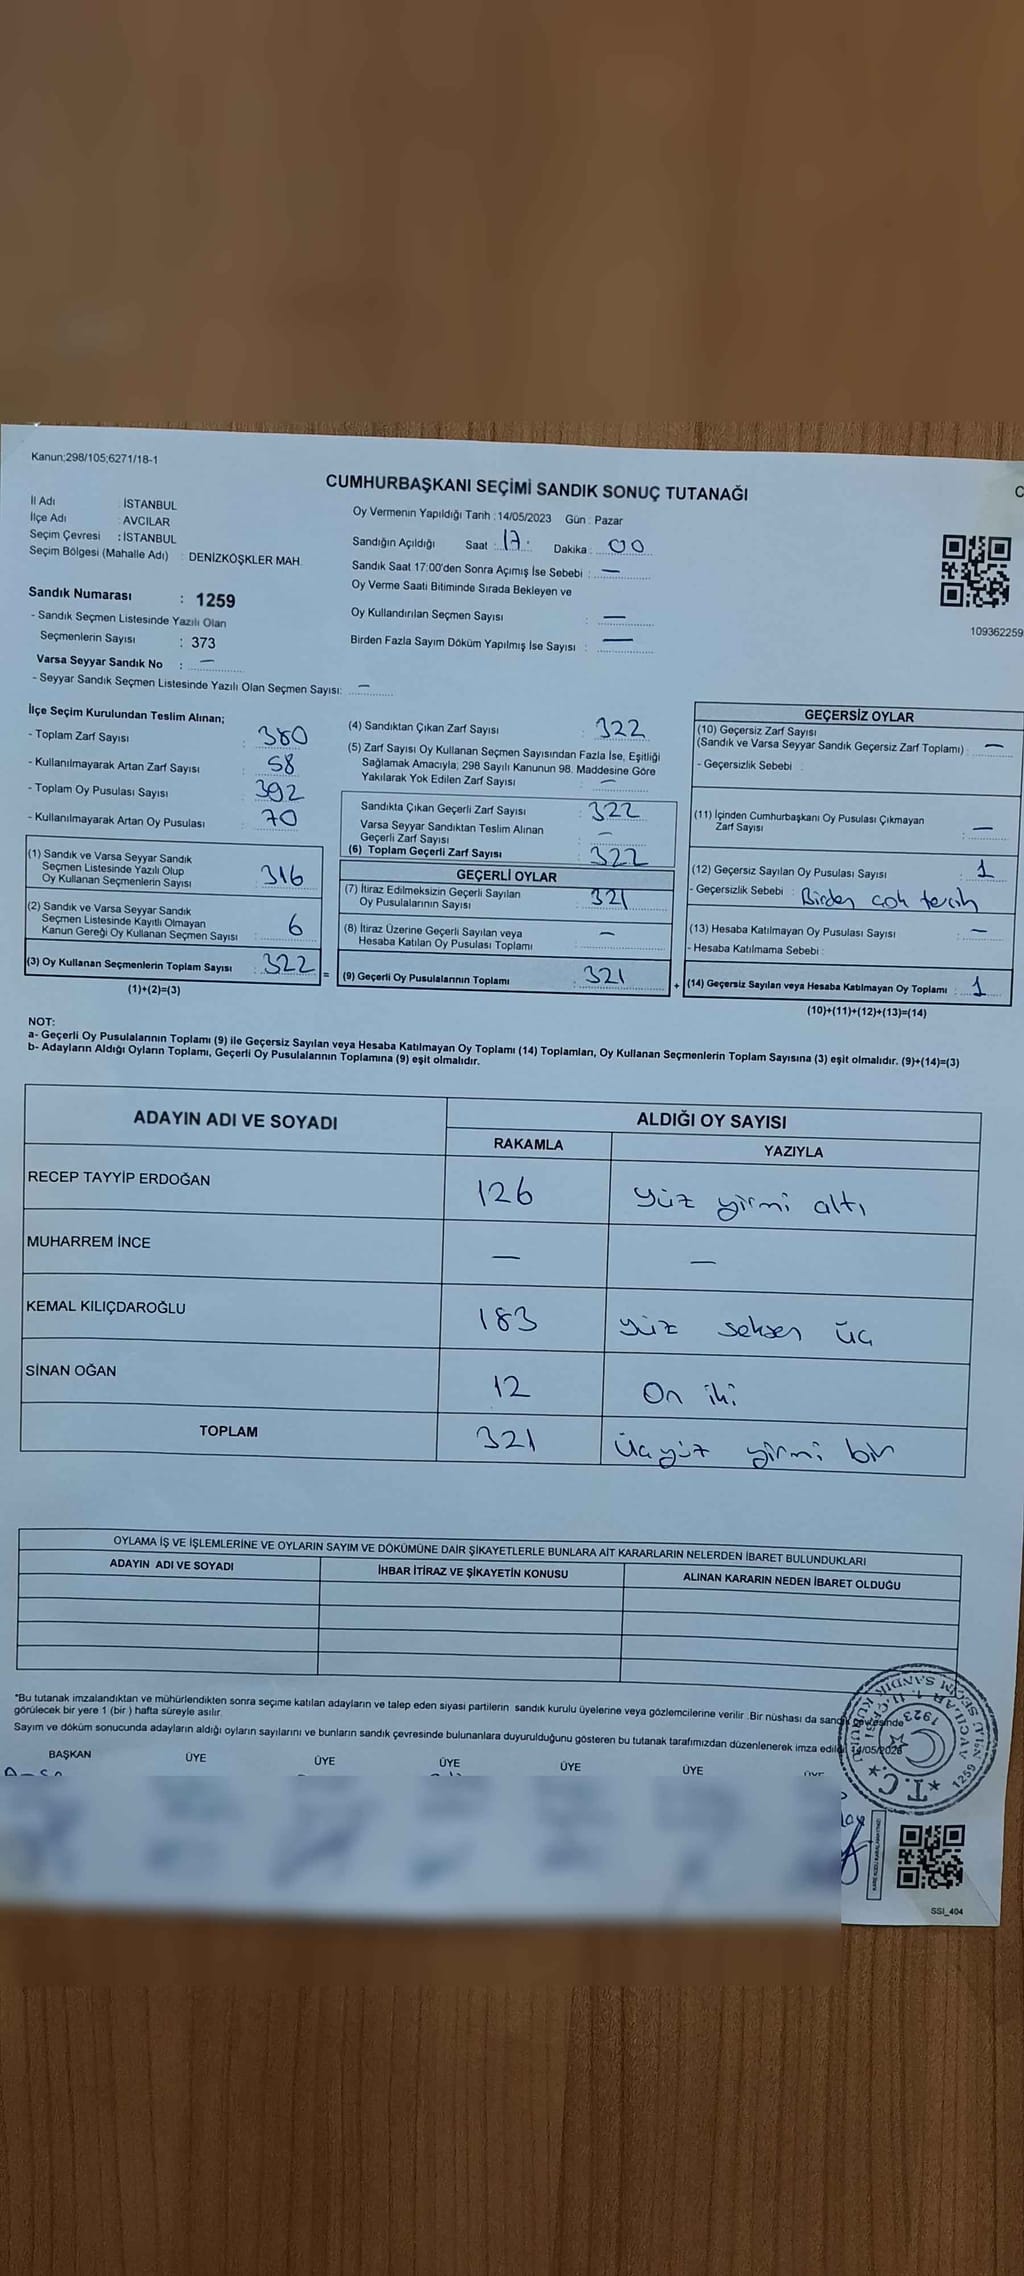 Kanun;298/105;6271/18-1
CUMHURBAŞKANI SEÇİMİ SANDIK SONUÇ TUTANAĞI
C
İl Adı : İSTANBUL
İlçe Adı : AVCILAR
Seçim Çevresi : İSTANBUL
Seçim Bölgesi (Mahalle Adı) : DENİZKÖŞKLER MAH.
Sandık Numarası : 1259
- Sandık Seçmen Listesinde Yazılı Olan
Seçmenlerin Sayısı : 373
Varsa Seyyar Sandık No : —
- Seyyar Sandık Seçmen Listesinde Yazılı Olan Seçmen Sayısı: —
Oy Vermenin Yapıldığı Tarih : 14/05/2023 Gün : Pazar
Sandığın Açıldığı Saat : 17 Dakika : 00
Sandık Saat 17:00'den Sonra Açımış İse Sebebi : —
Oy Verme Saati Bitiminde Sırada Bekleyen ve
Oy Kullandırılan Seçmen Sayısı : —
Birden Fazla Sayım Döküm Yapılmış İse Sayısı : —
109362259
İlçe Seçim Kurulundan Teslim Alınan;
- Toplam Zarf Sayısı : 380
- Kullanılmayarak Artan Zarf Sayısı : 58
- Toplam Oy Pusulası Sayısı : 392
- Kullanılmayarak Artan Oy Pusulası : 70
(1) Sandık ve Varsa Seyyar Sandık
Seçmen Listesinde Yazılı Olup
Oy Kullanan Seçmenlerin Sayısı : 316
(2) Sandık ve Varsa Seyyar Sandık
Seçmen Listesinde Kayıtlı Olmayan
Kanun Gereği Oy Kullanan Seçmen Sayısı : 6
(3) Oy Kullanan Seçmenlerin Toplam Sayısı : 322 =
(1)+(2)=(3)
(4) Sandıktan Çıkan Zarf Sayısı : 322
(5) Zarf Sayısı Oy Kullanan Seçmen Sayısından Fazla İse, Eşitliği
Sağlamak Amacıyla; 298 Sayılı Kanunun 98. Maddesine Göre
Yakılarak Yok Edilen Zarf Sayısı : —
Sandıkta Çıkan Geçerli Zarf Sayısı : 322
Varsa Seyyar Sandıktan Teslim Alınan
Geçerli Zarf Sayısı : —
(6) Toplam Geçerli Zarf Sayısı : 322
GEÇERLİ OYLAR
(7) İtiraz Edilmeksizin Geçerli Sayılan
Oy Pusulalarının Sayısı : 321
(8) İtiraz Üzerine Geçerli Sayılan veya
Hesaba Katılan Oy Pusulası Toplamı : —
(9) Geçerli Oy Pusulalarının Toplamı : 321 +
GEÇERSİZ OYLAR
(10) Geçersiz Zarf Sayısı
(Sandık ve Varsa Seyyar Sandık Geçersiz Zarf Toplamı) : —
- Geçersizlik Sebebi :
(11) İçinden Cumhurbaşkanı Oy Pusulası Çıkmayan
Zarf Sayısı : —
(12) Geçersiz Sayılan Oy Pusulası Sayısı : 1
- Geçersizlik Sebebi : Birden çok tercih
(13) Hesaba Katılmayan Oy Pusulası Sayısı : —
- Hesaba Katılmama Sebebi :
(14) Geçersiz Sayılan veya Hesaba Katılmayan Oy Toplamı : 1
(10)+(11)+(12)+(13)=(14)
NOT:
a- Geçerli Oy Pusulalarının Toplamı (9) ile Geçersiz Sayılan veya Hesaba Katılmayan Oy Toplamı (14) Toplamları, Oy Kullanan Seçmenlerin Toplam Sayısına (3) eşit olmalıdır. (9)+(14)=(3)
b- Adayların Aldığı Oyların Toplamı, Geçerli Oy Pusulalarının Toplamına (9) eşit olmalıdır.
ADAYIN ADI VE SOYADI ALDIĞI OY SAYISI
RAKAMLA YAZIYLA
RECEP TAYYİP ERDOĞAN 126 yüz yirmi altı
MUHARREM İNCE — —
KEMAL KILIÇDAROĞLU 183 yüz seksen üç
SİNAN OĞAN 12 On iki
TOPLAM 321 üçyüz yirmi bir
OYLAMA İŞ VE İŞLEMLERİNE VE OYLARIN SAYIM VE DÖKÜMÜNE DAİR ŞİKAYETLERLE BUNLARA AİT KARARLARIN NELERDEN İBARET BULUNDUKLARI
ADAYIN ADI VE SOYADI İHBAR İTİRAZ VE ŞİKAYETİN KONUSU ALINAN KARARIN NEDEN İBARET OLDUĞU
*Bu tutanak imzalandıktan ve mühürlendikten sonra seçime katılan adayların ve talep eden siyasi partilerin sandık kurulu üyelerine veya gözlemcilerine verilir .Bir nüshası da sandık çevresinde
görülecek bir yere 1 (bir ) hafta süreyle asılır.
Sayım ve döküm sonucunda adayların aldığı oyların sayılarını ve bunların sandık çevresinde bulunanlara duyurulduğunu gösteren bu tutanak tarafımızdan düzenlenerek imza edildi. 14/05/2023
BAŞKAN ÜYE ÜYE ÜYE ÜYE ÜYE ÜYE
T.C. 1923
1259
SSI_404